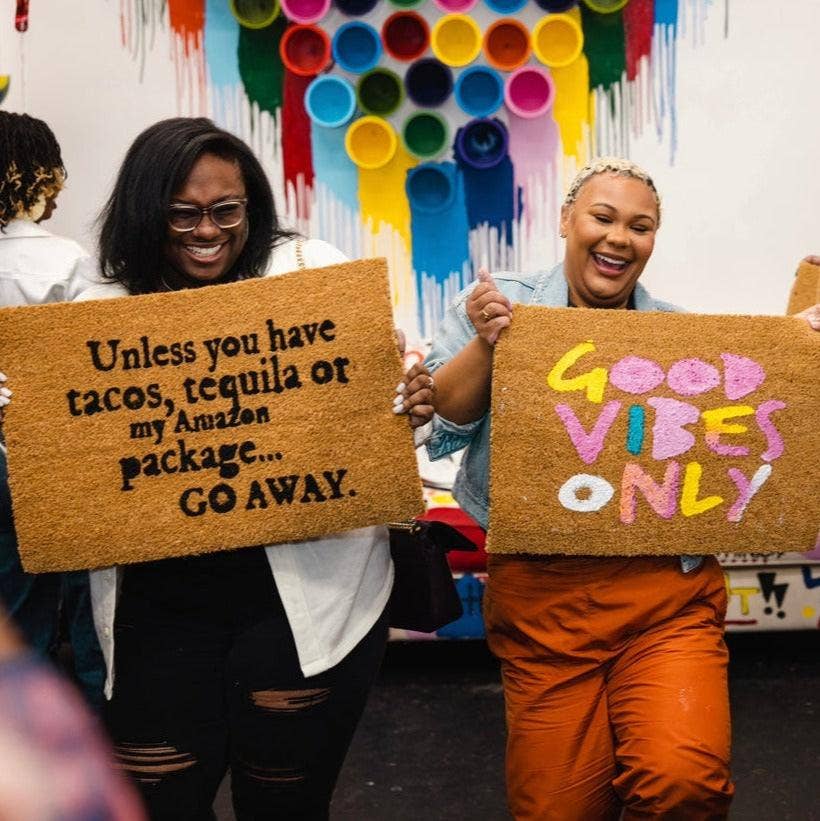 Unless you have
tacos, tequila or
my Amazon
package...
GO AWAY.
GOOD
VIBES
ONLY